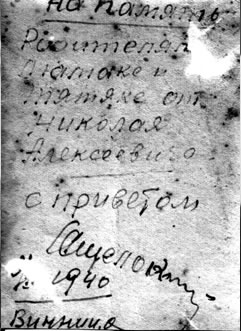 на память
Родителям
Мамаке и
Тятяке от
Николая
Алексеевича
с приветом
1940
Винница